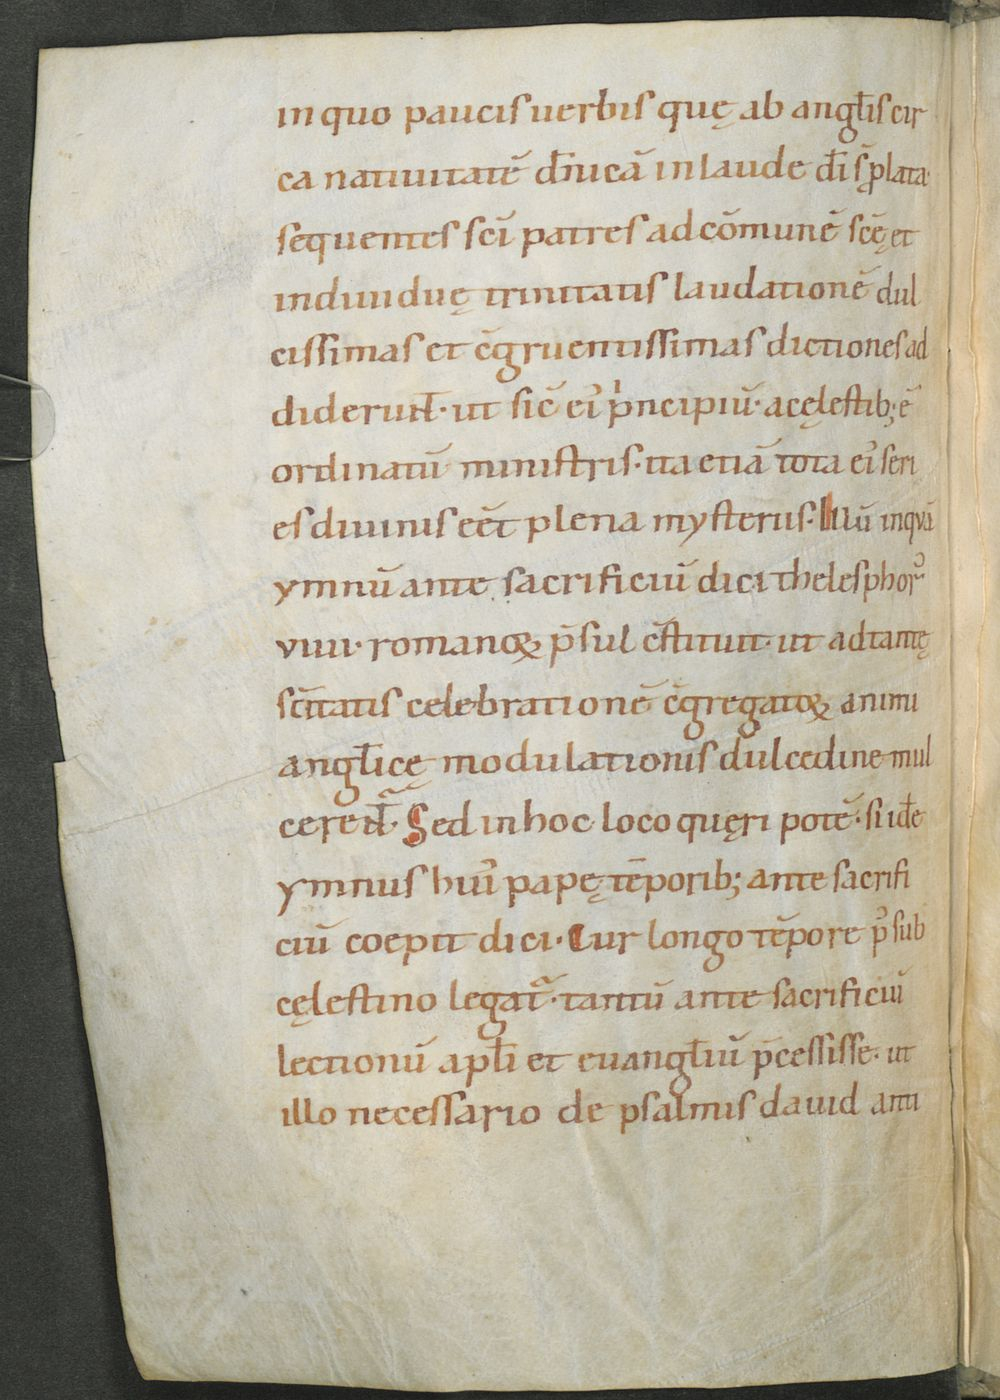 in quo paucis uerbis quę ab angłis cir
ca natiuitatē d̄nicā in laude d̄i s̄ p̄lata·
sequentes sc̄i patres ad cōmunē sc̄ę et
indiuiduę trinitatis laudationē dul
cissimas et c̄gruentissimas dictiones ad
diderun̄t· ut sic̄ ei᾽ pⁱncipiū· a cęlestib; ē
ordinatū ministris· ita etiā tota ei᾽ seri
es diuinis eēt plena mysteriis· Illū inquā
ymnū ante sacrificiū dici thelesphor᾽
viiii· romanoꝝ p̄sul c̄stituit· ut ad tantę
sc̄itatis celebrationē c̄gregatoꝝ animi
angłicę modulationis dulcedine mul
cerent᷑· Sed in hoc loco quęri potē· si id̄e
ymnus hui᾽ papę tēporib; ante sacrifi
ciū coepit dici· Cur longo tēpore p᾽ sub
cęlestino legat᷑· tantū ante sacrificiū
lectionū apłi et euangłiū p̄cessisse· ut
illo necessario de psalmis dauid anti